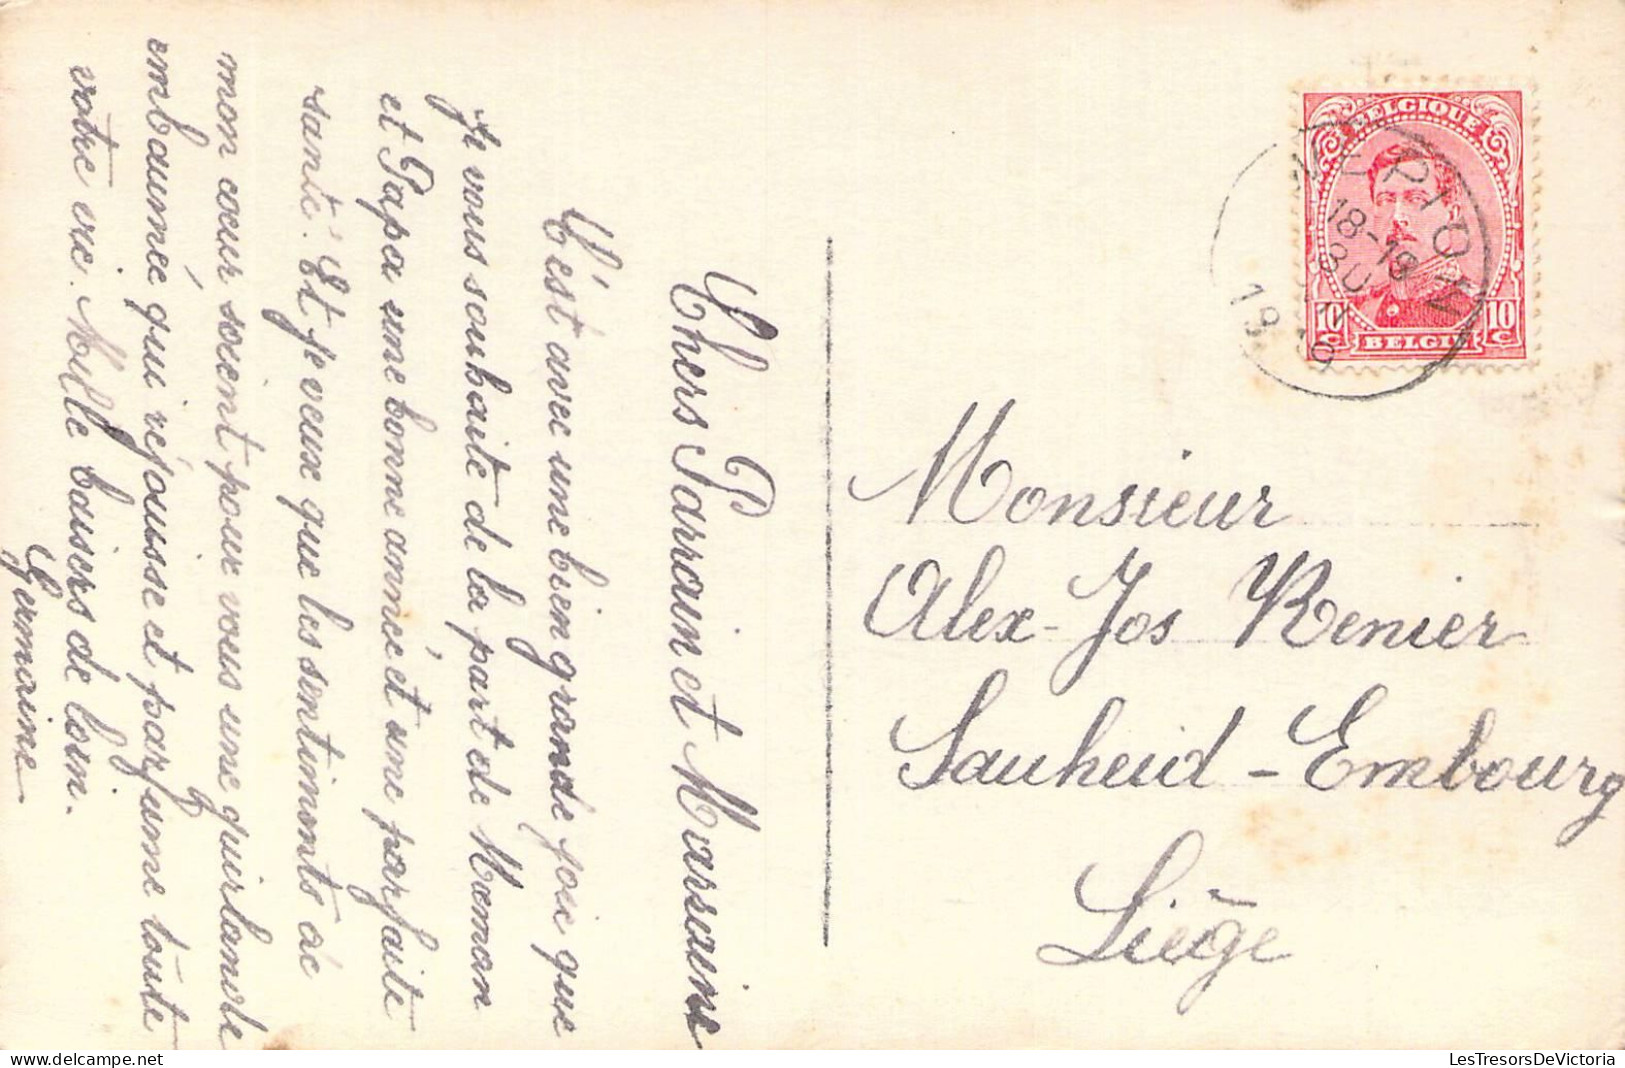 Chers Parrain et Marraine
C'est avec une bien grande joie que
je vous souhaite de la part de Maman
et Papa une bonne année et une parfaite
santé. Et je veux que les sentiments de
mon cœur soient pour vous une guirlande
embaumée qui rejouisse et parfume toute
votre vie. Mille baisers de loin.
Germaine
BELGIQUE
10 c
10 c
BELGIE
18-19
19 19
Monsieur
Alex-Jos Renier
Sauheid - Embourg
Liège
LesTresorsDeVictoria